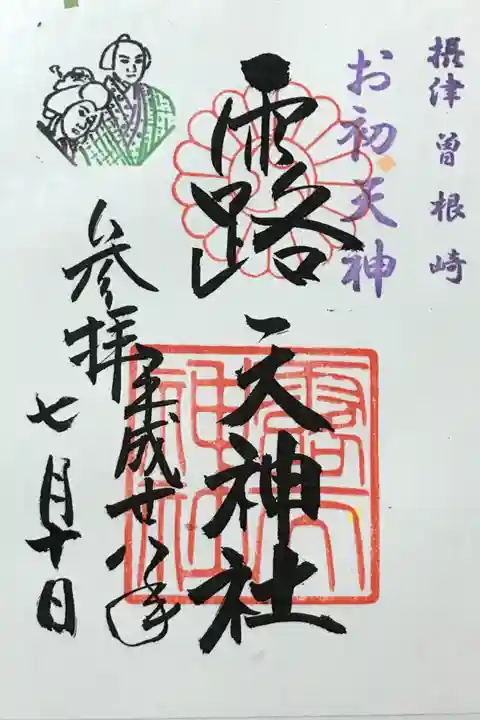 摂津 曽根崎
お初天神
露 天神社
平成廿八年
参拝
七月十日